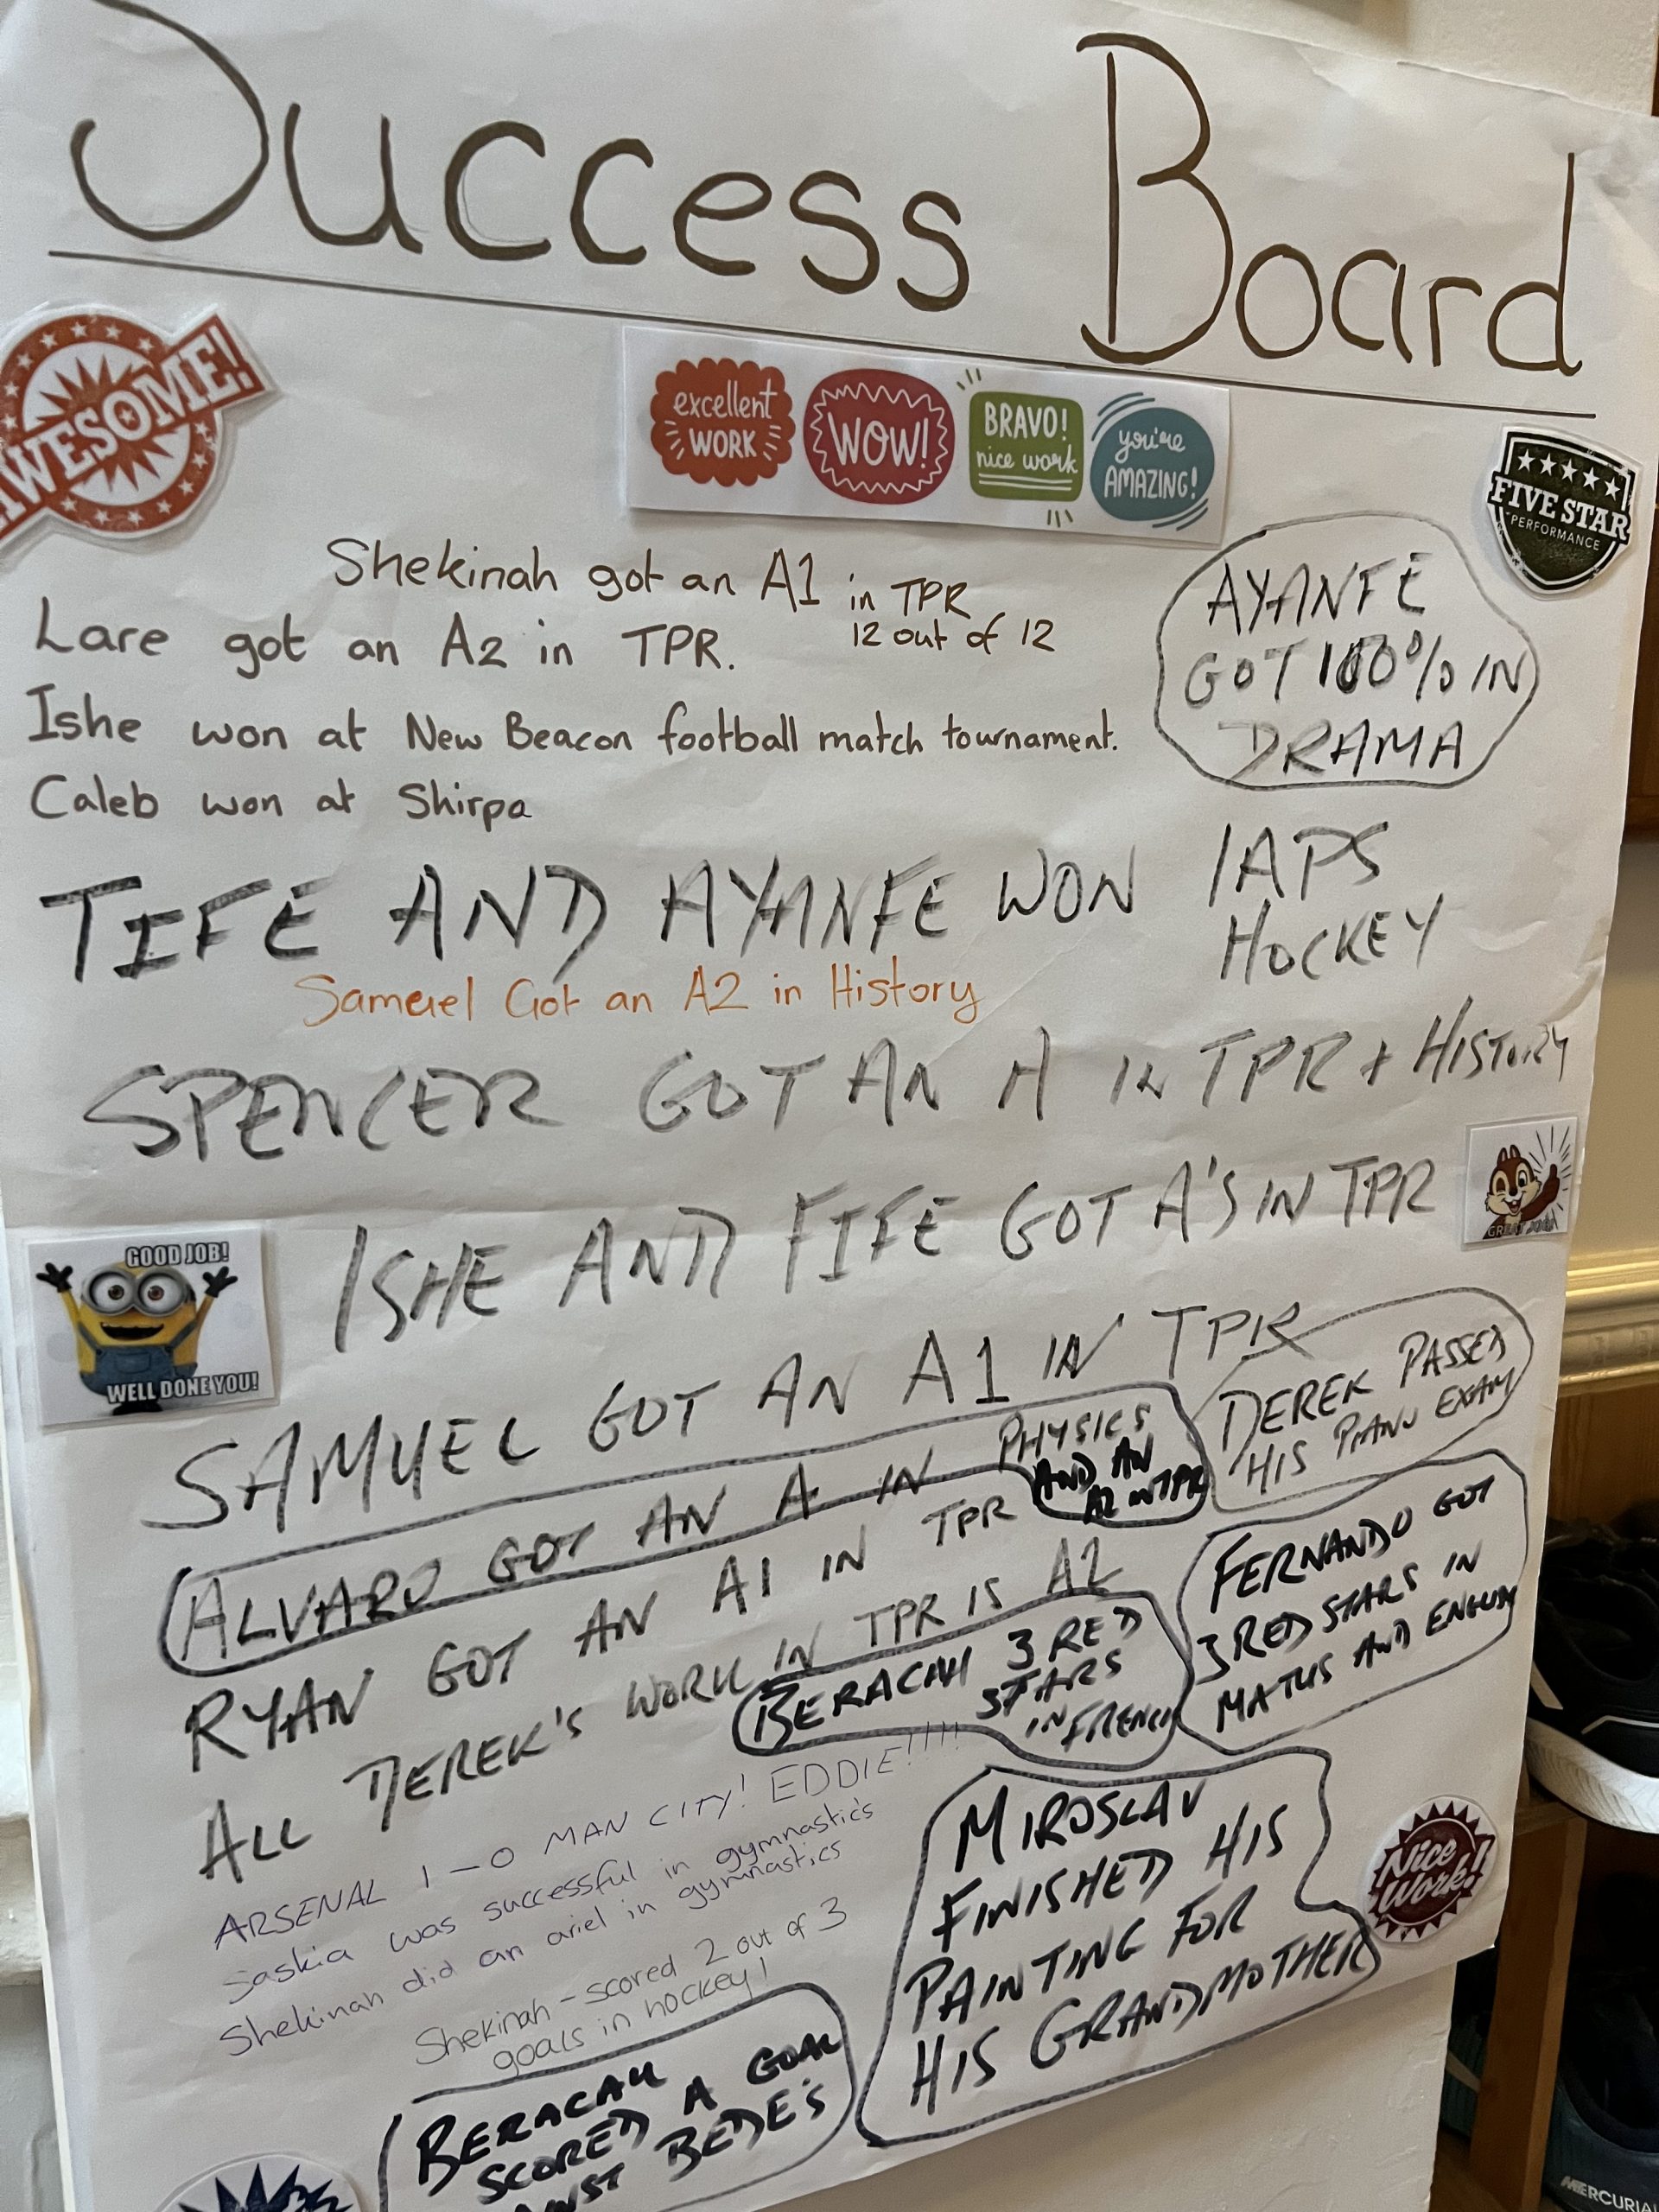 Success Board
AWESOME!
excellent
WORK
WOW!
BRAVO!
nice work
you're
AMAZING!
FIVE STAR
PERFORMANCE
Shekinah got an A1 in TPR
12 out of 12
Lare got an A2 in TPR.
AYANFE
GOT 100% IN
DRAMA
Ishe won at New Beacon football match tournament.
Caleb won at Shirpa
TIFE AND AYANFE WON IAPS
HOCKEY
Samuel Got an A2 in History
SPENCER GOT AN A IN TPR + HISTORY
ISHE AND FIFE GOT A'S IN TPR
GREAT JOB!
GOOD JOB!
WELL DONE YOU!
SAMUEL GOT AN A1 IN TPR
DEREK PASSED
HIS PIANO EXAM
ALVARO GOT AN A IN PHYSICS
AND AN
A2 IN TPR
RYAN GOT AN A1 IN TPR
ALL DEREK'S WORK IN TPR IS A2
FERNANDO GOT
3 RED STARS IN
MATHS AND ENGLISH
BERACAH 3 RED
STARS
IN FRENCH
ARSENAL 1-0 MAN CITY! EDDIE!!!!
Saskia was successful in gymnastics
Shekinah did an ariel in gymnastics
Shekinah - scored 2 out of 3
goals in hockey!
MIROSLAV
FINISHED HIS
PAINTING FOR
HIS GRANDMOTHER
Nice
Work!
BERACAH
SCORED A GOAL
BEDE'S
MERCURIAL